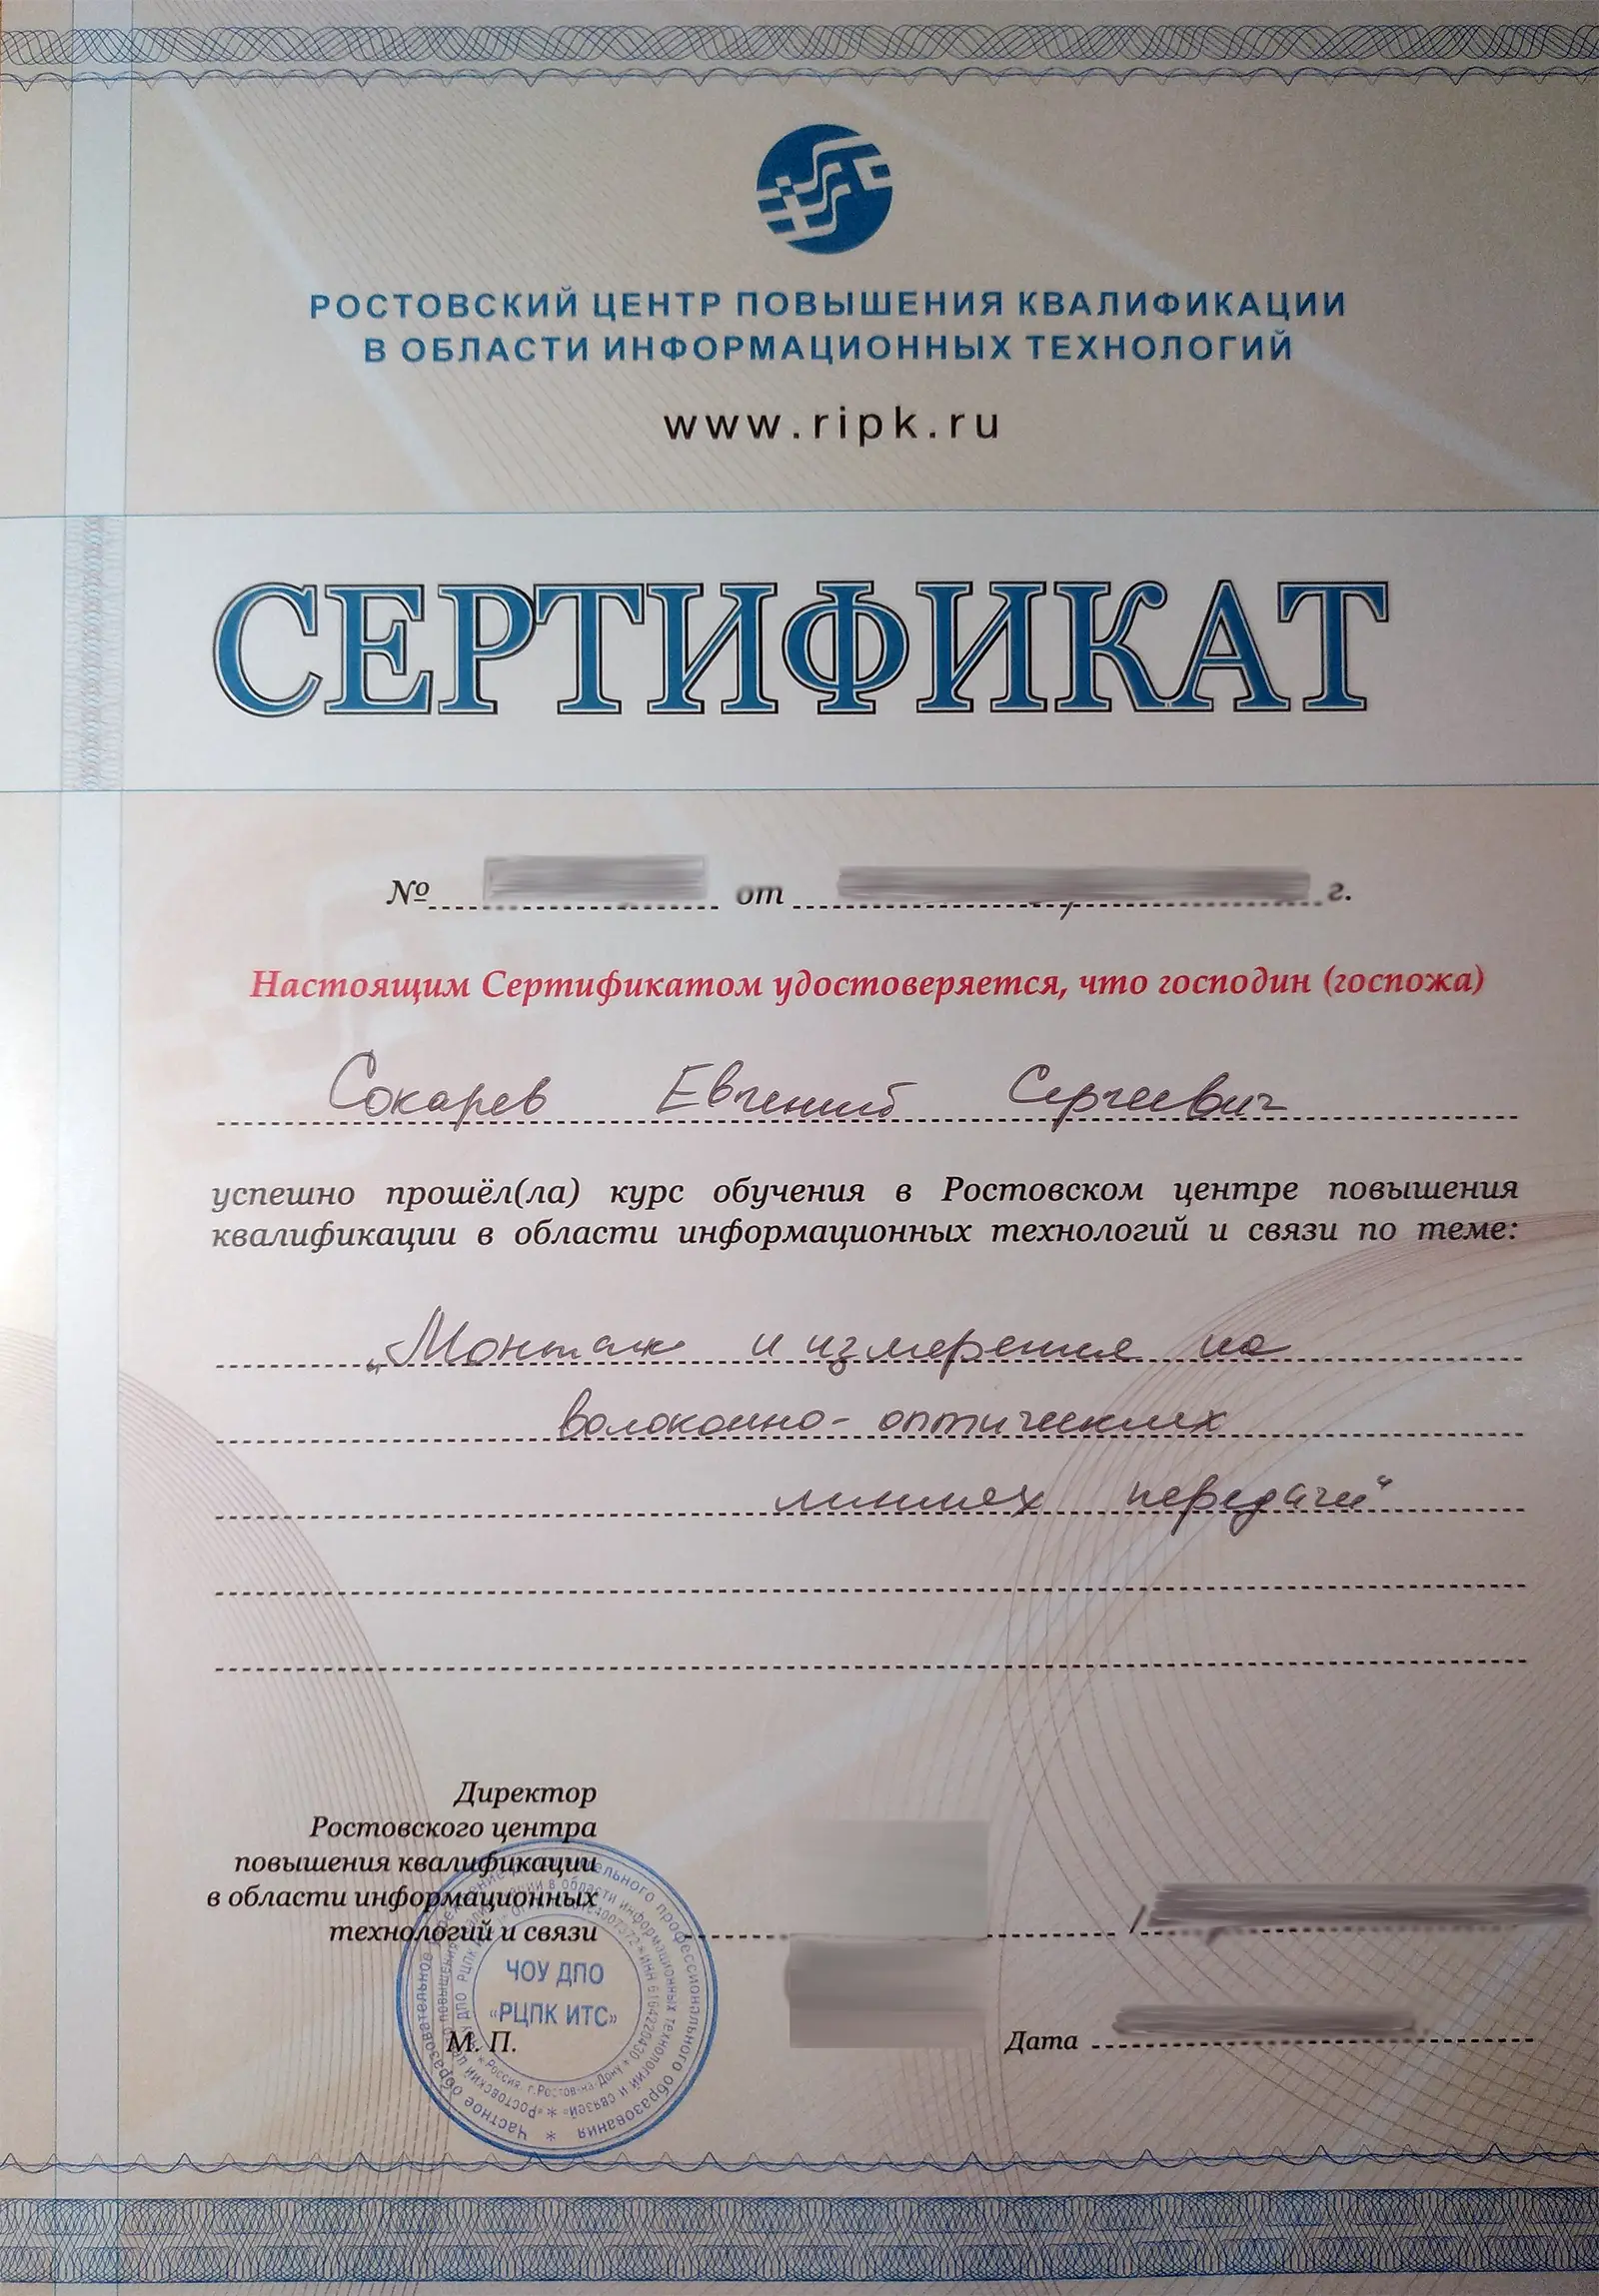 РОСТОВСКИЙ ЦЕНТР ПОВЫШЕНИЯ КВАЛИФИКАЦИИ
В ОБЛАСТИ ИНФОРМАЦИОННЫХ ТЕХНОЛОГИЙ
www.ripk.ru
СЕРТИФИКАТ
№ от г.
Настоящим Сертификатом удостоверяется, что господин (госпожа)
Сокарев Евгений Сергеевич
успешно прошёл(ла) курс обучения в Ростовском центре повышения
квалификации в области информационных технологий и связи по теме:
„Монтаж и измерения на
волоконно-оптических
линиях передачи“
Директор
Ростовского центра
повышения квалификации
в области информационных
технологий и связи /
ЧОУ ДПО
«РЦПК ИТС»
М. П.
Дата
Частное образовательное учреждение дополнительного профессионального образования